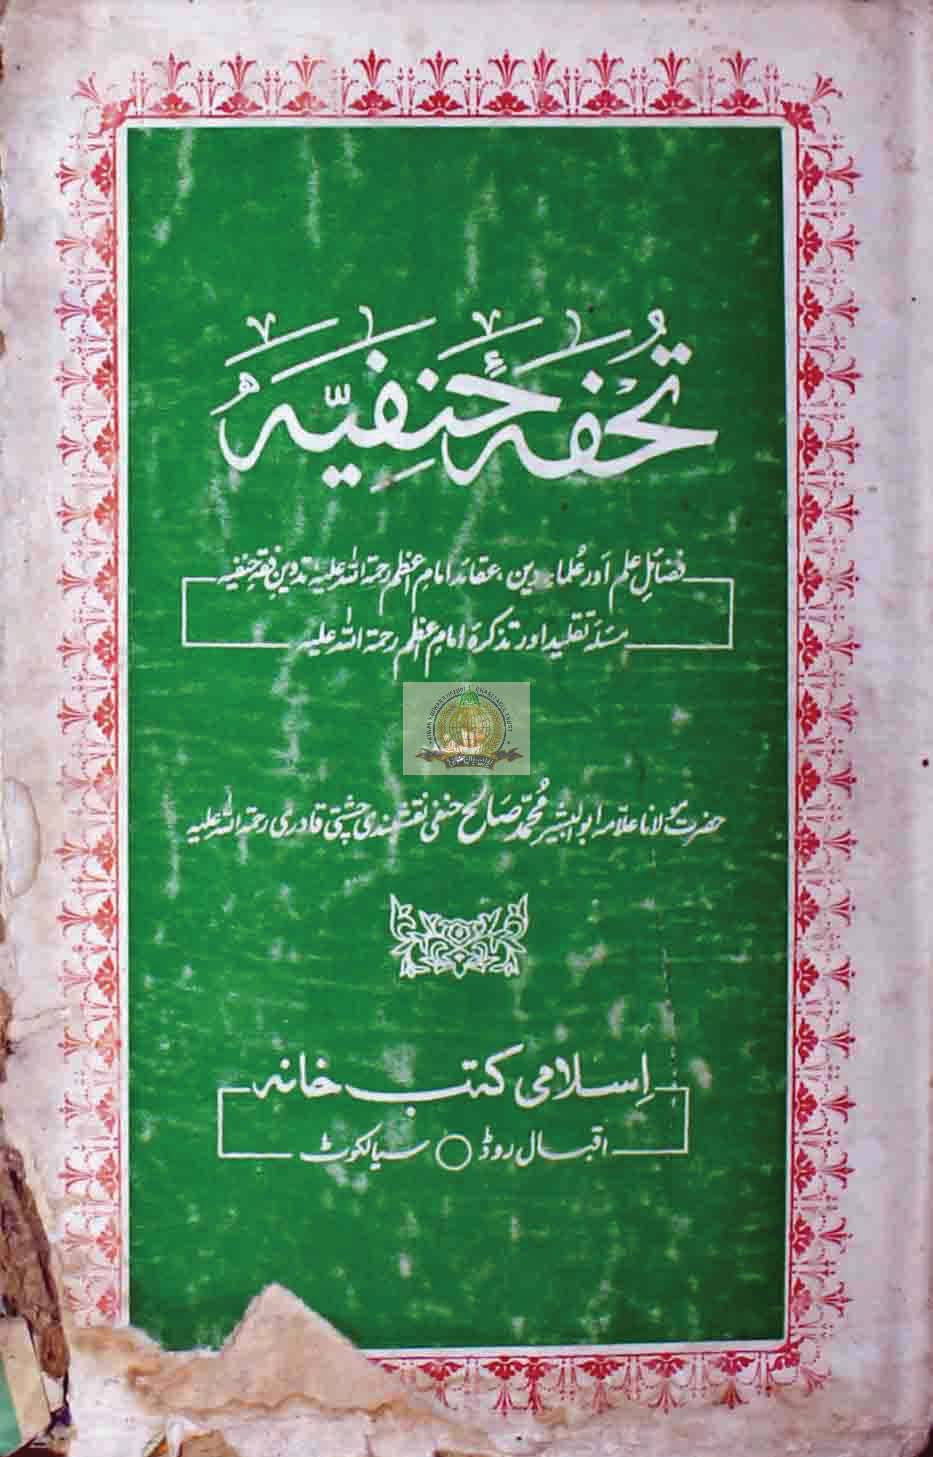 تُحفۂ حنفیہ
فضائلِ علم اور عُلماء دین، عقائد امامِ اعظم رحمۃ اللہ علیہ تدوینِ فقہ حنفیہ
مسئلہ تقلید اور تذکرۂ امامِ اعظم رحمۃ اللہ علیہ
حضرت مولانا علّامہ ابوالبشیر محمّد صالح حنفی نقشبندی چشتی قادری رحمۃ اللہ علیہ
اِسلامی کتب خانہ
اقبال روڈ ○ سیالکوٹ